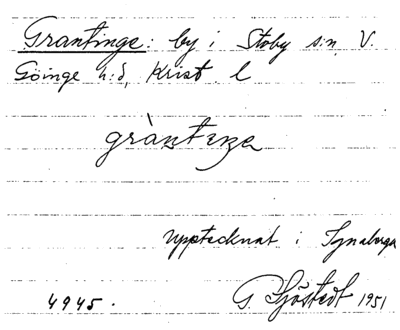 Grantinge: by i Stoby sn V.
Göinge h:d, Krist. l
grànteŋe
Upptecknat i Ignaberga
4945. G. Sjöstedt 1951